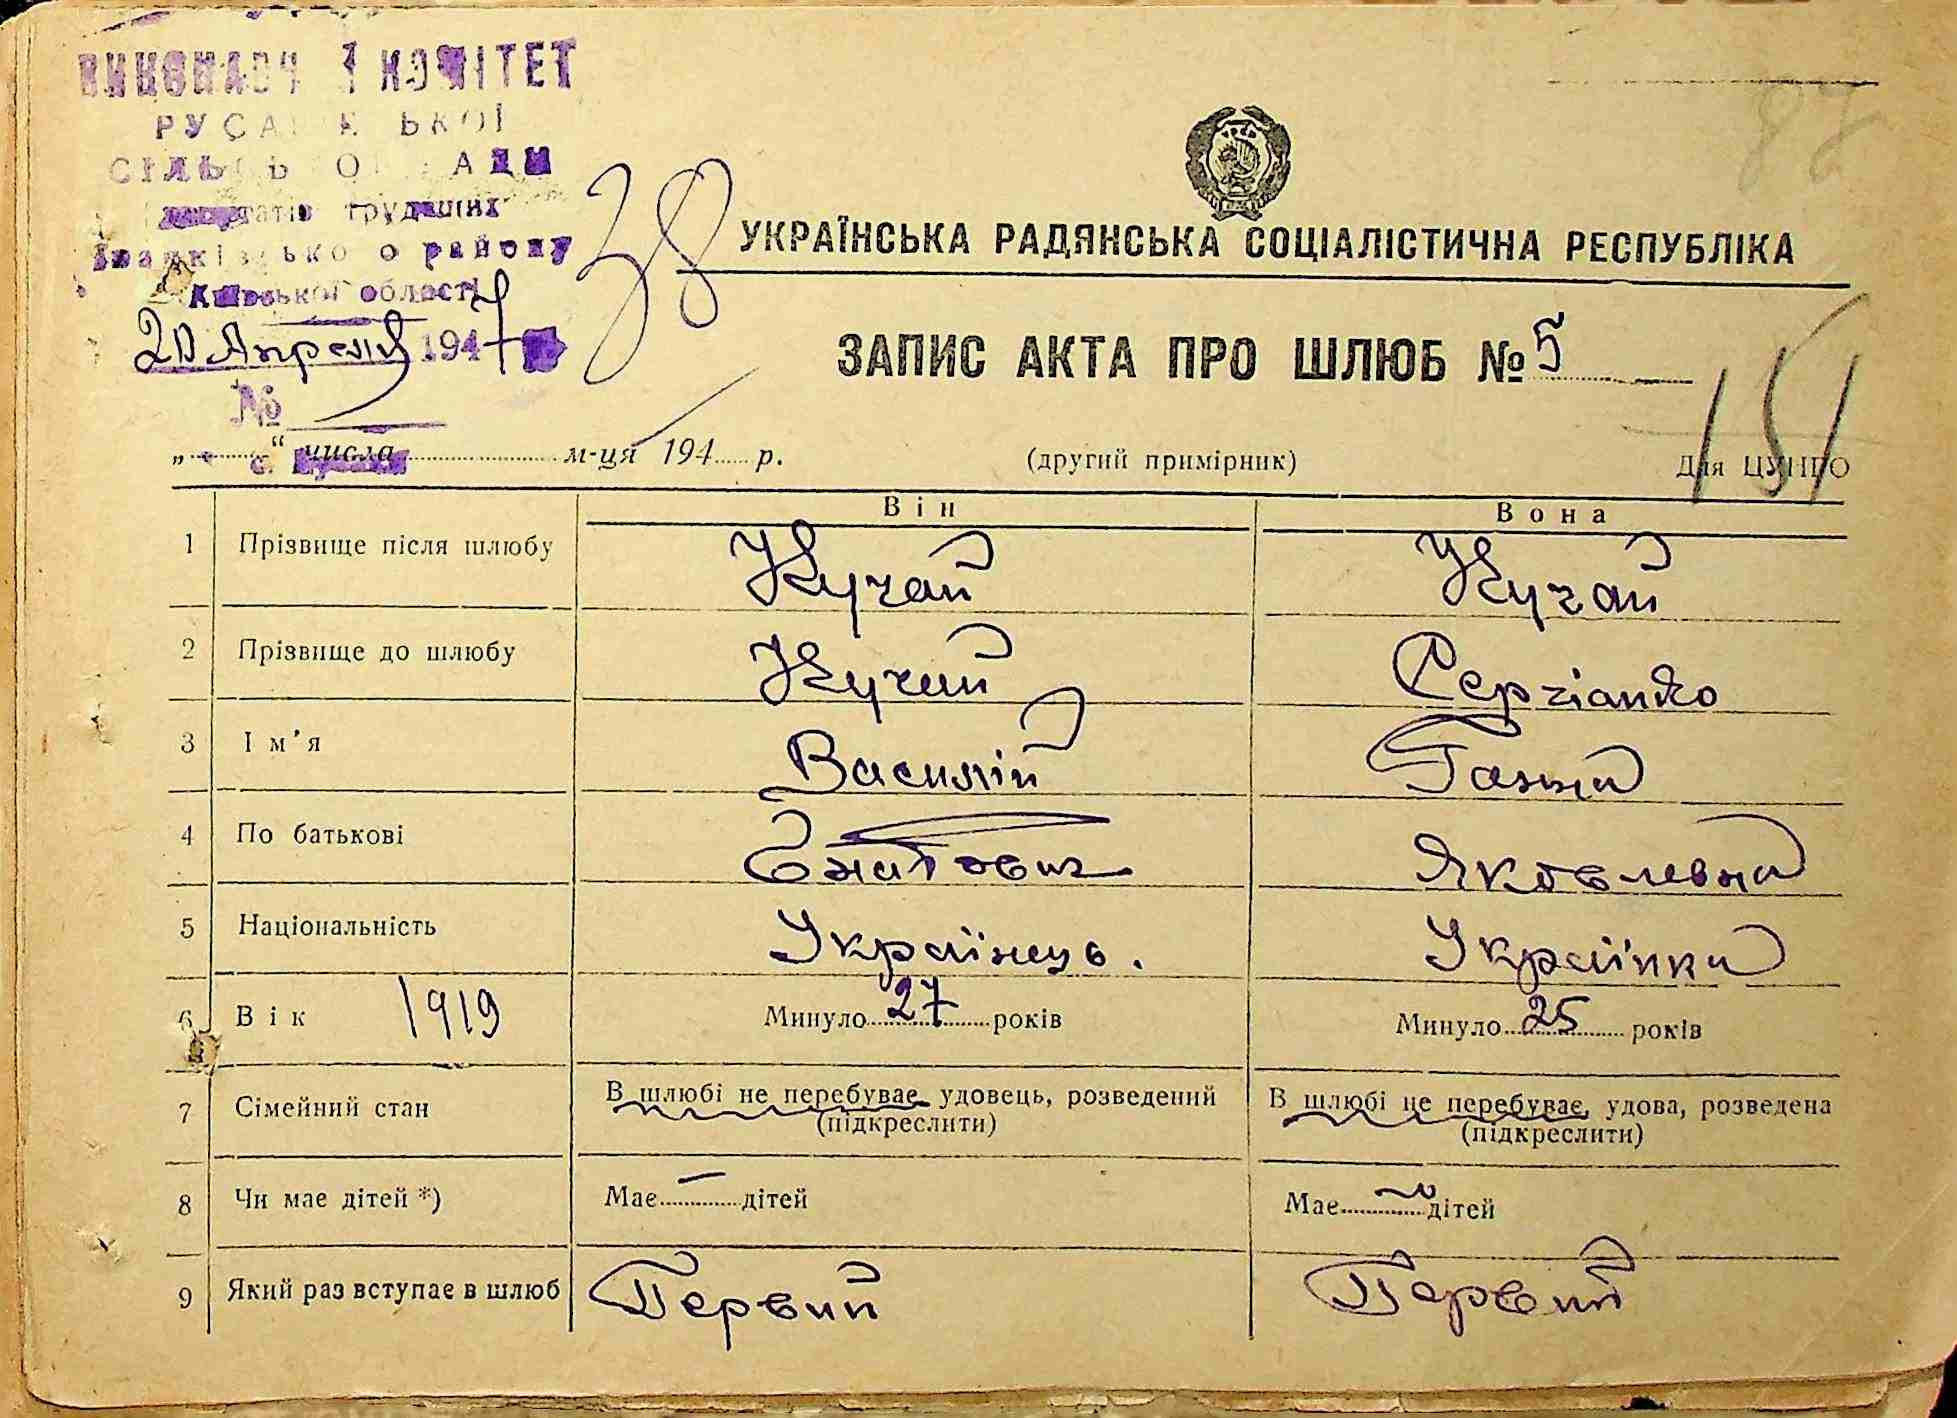 КОМІТЕТ
районy
Київської області
20 Апреля 1947
№
38
88
УКРАЇНСЬКА РАДЯНСЬКА СОЦІАЛІСТИЧНА РЕСПУБЛІКА
ЗАПИС АКТА ПРО ШЛЮБ № 5
151
„ “ числа м-ця 194 р. (другий примірник) Для
Він Вона
1 Прізвище після шлюбу Кучай Кучай
2 Прізвище до шлюбу Кучай
3 Ім'я Василій Ганна
4 По батькові Яковлевна
5 Національність Українець. Українка
6 Вік 1919 Минуло 27 років Минуло 25 років
7 Сімейний стан В шлюбі не перебуває, удовець, розведений (підкреслити) В шлюбі не перебуває, удова, розведена (підкреслити)
8 Чи має дітей *) Має — дітей Має дітей
9 Який раз вступає в шлюб Первий Первий